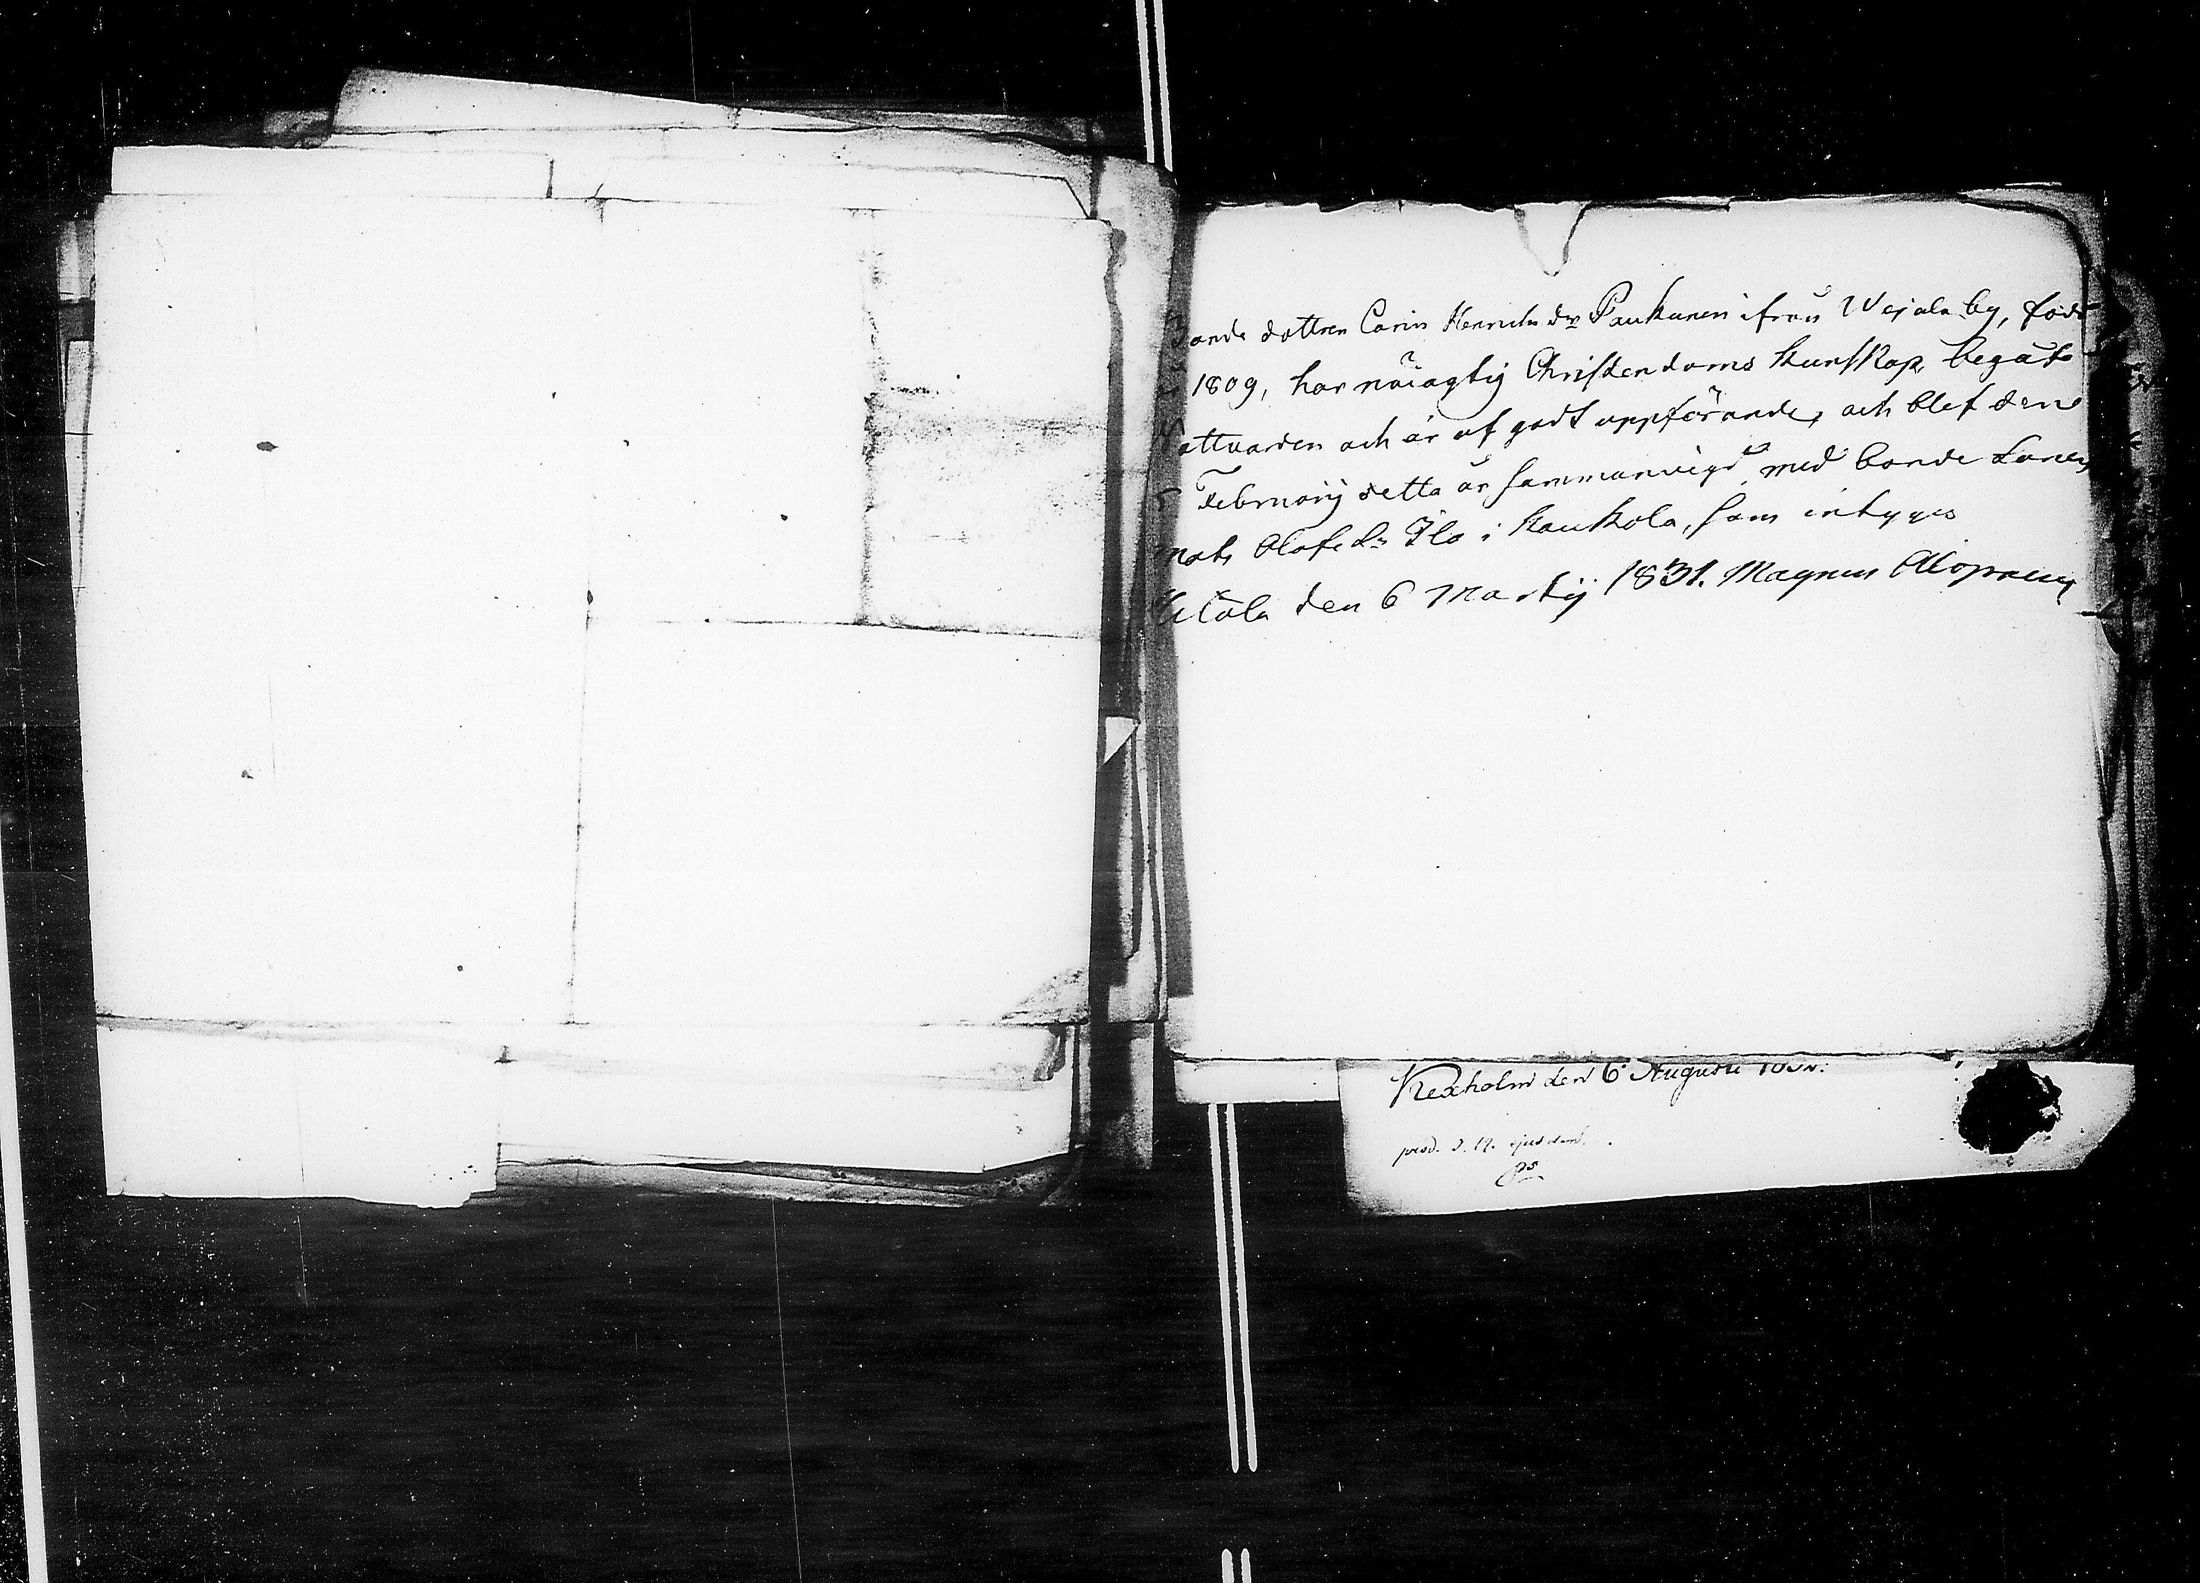 Bonde dottren Carin Henrichs dr Paukunen ifrån Wejala by, född
1809, har nöiagtig Christendoms kunskap, begåt
Nattvarden och är af godt uppförande, och blef den
Februarij detta år sammanvigd med bonde Sonen
Mats Olofs Sn Ilo i Kaukola, som intygas
Hitola den 6 Martij 1831. Magnus Alopaeus
Kexholm den 6 Augusti
prod. d. 17. ejusdem.